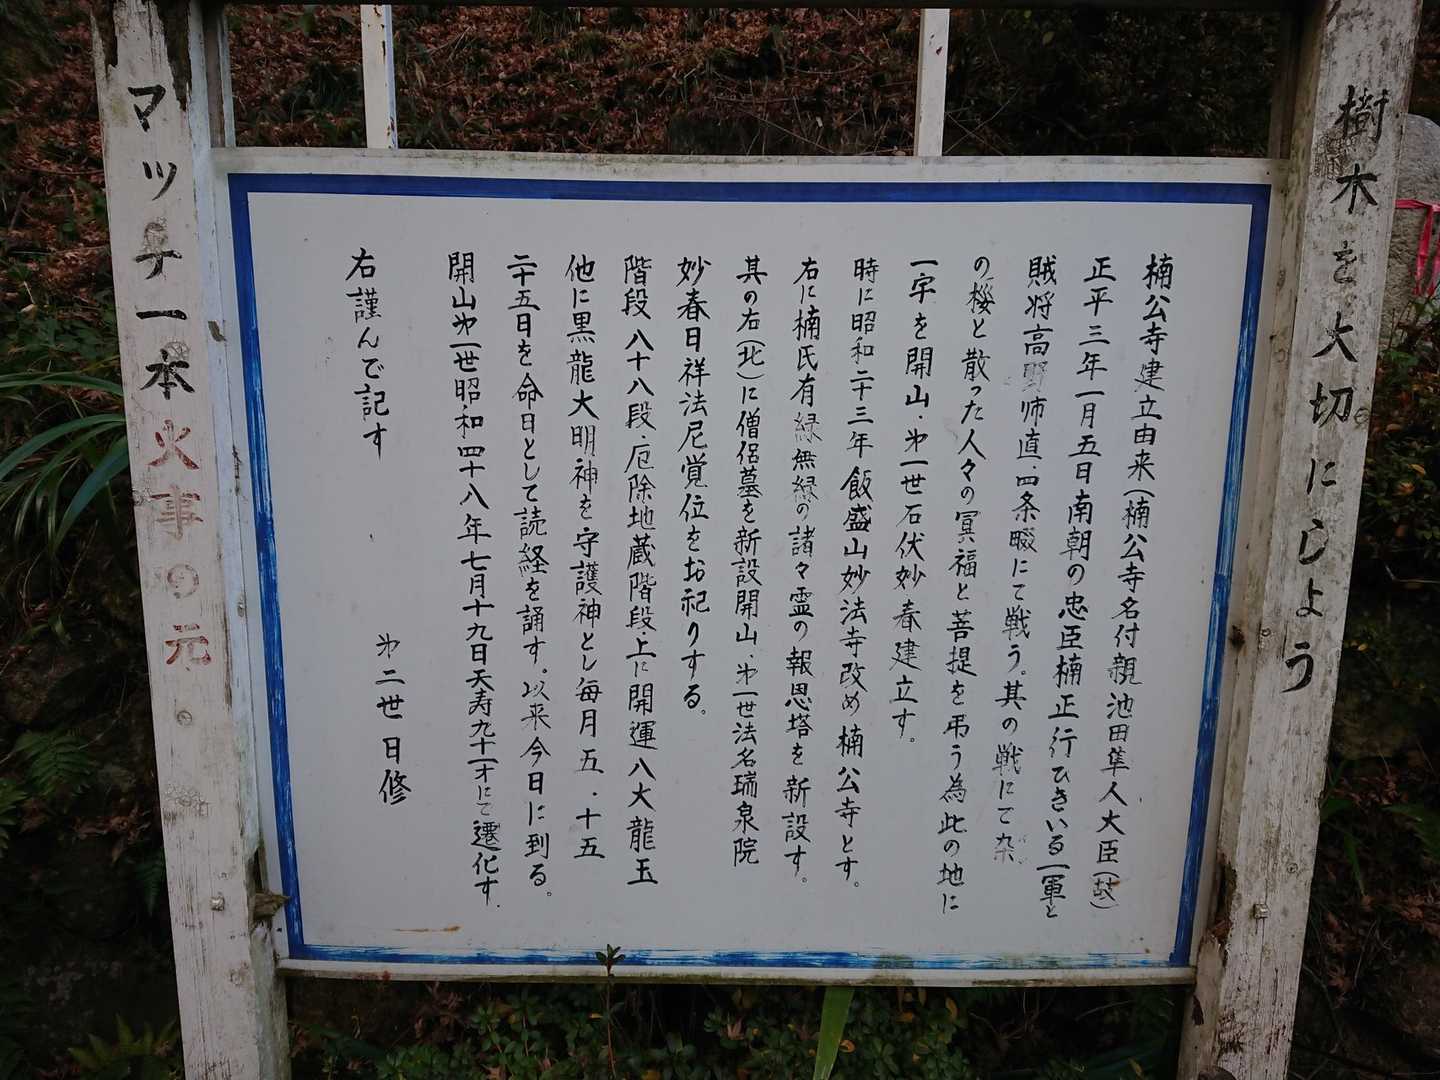 樹木を大切にしよう
楠公寺建立由来(楠公寺名付親池田隼人大臣(故)
正平三年一月五日南朝の忠臣楠正行ひきいる一軍と
賊将高野師直、四条畷にて戦う。其の戦にて
の桜と散った人々の冥福と菩提を弔う為此の地に
一宇を開山、㐧一世石伏妙春建立す。
時に昭和二十三年飯盛山妙法寺改め楠公寺とす。
右に楠氏有縁無縁の諸々霊の報恩塔を新設す。
其の右(北)に僧侶墓を新設開山、㐧一世法名瑞泉院
妙春日祥法尼覚位をお祀りする。
階段八十八段、厄除地蔵階段上に開運八大龍王
他に黒龍大明神を守護神とし毎月五、十五
二十五日を命日として読経を誦す。以来今日に到る。
開山㐧一世昭和四十八年七月十九日天寿九十一才にて遷化す.
右謹んで記す
㐧二世日修
マッチ一本火事の元。